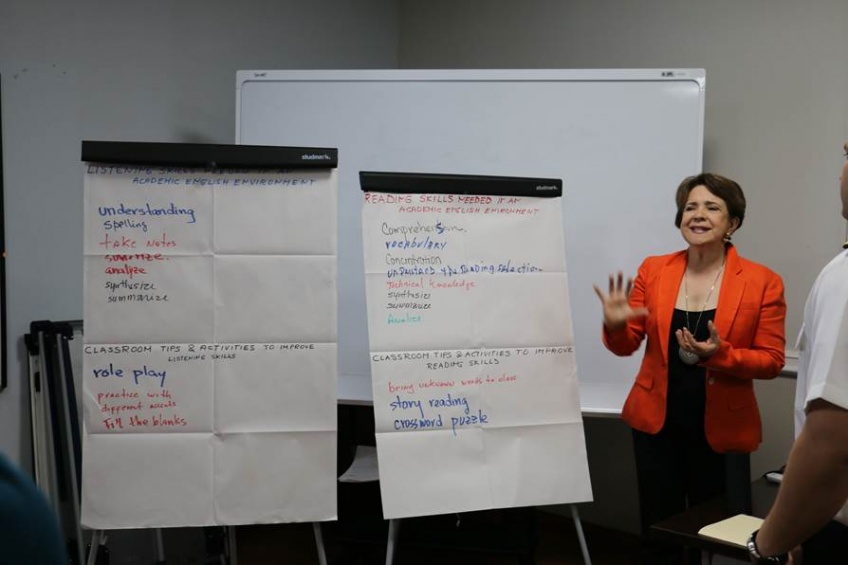 studmark.
LISTENING SKILLS NEEDED IF AN
ACADEMIC ENGLISH ENVIRONMENT
understanding
spelling
TAKE NOTES
analyze
synthesize
summarize
CLASSROOM TIPS & ACTIVITIES TO IMPROVE
LISTENING SKILLS
role play
practice with
different accents
Fill the blanks
studmark.
READING SKILLS NEEDED IF AN
ACADEMIC ENGLISH ENVIRONMENT
Comprehension.
vocabulary
Concentration
understand the reading selection
Technical knowledge
synthesize
summarize
Analize
CLASSROOM TIPS & ACTIVITIES TO IMPROVE
READING SKILLS
bring unknown words to class
story reading
crossword puzzle